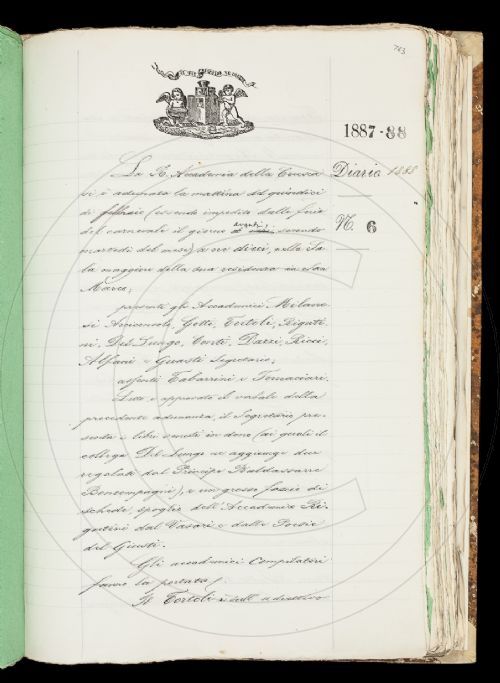 783
1887-88
Diario 1888
N. 6
La R. Accademia della Crusca
si è adunata la mattina del quindici
di febbraio (essendo impedito dalle ferie
del carnevale il giorno avanti, secondo
martedì del mese) a ore dieci, nella Sa
la maggiore della sua residenza in San
Marco;
presenti gli Accademici Milane
si Arciconsolo, Gotti, Tortoli, Riguti
ni, Del Lungo, Conti, Dazzi, Ricci,
Alfani e Guasti Segretario;
assenti Tabarrini e Tomaciari.
Letto e approvato il verbale della
precedente adunanza, il Segretario pre-
senta i libri venuti in dono (ai quali il
collega Del Lungo ne aggiunge due
regalati dal Principe Baldassarre
Boncompagni), e un grosso fascio di
schede, spoglio dell'Accademico Ri-
gutini dal Vasari e dalle Poesie
del Giusti.
Gli accademici Compilatori
fanno la portata:
Il Tortoli